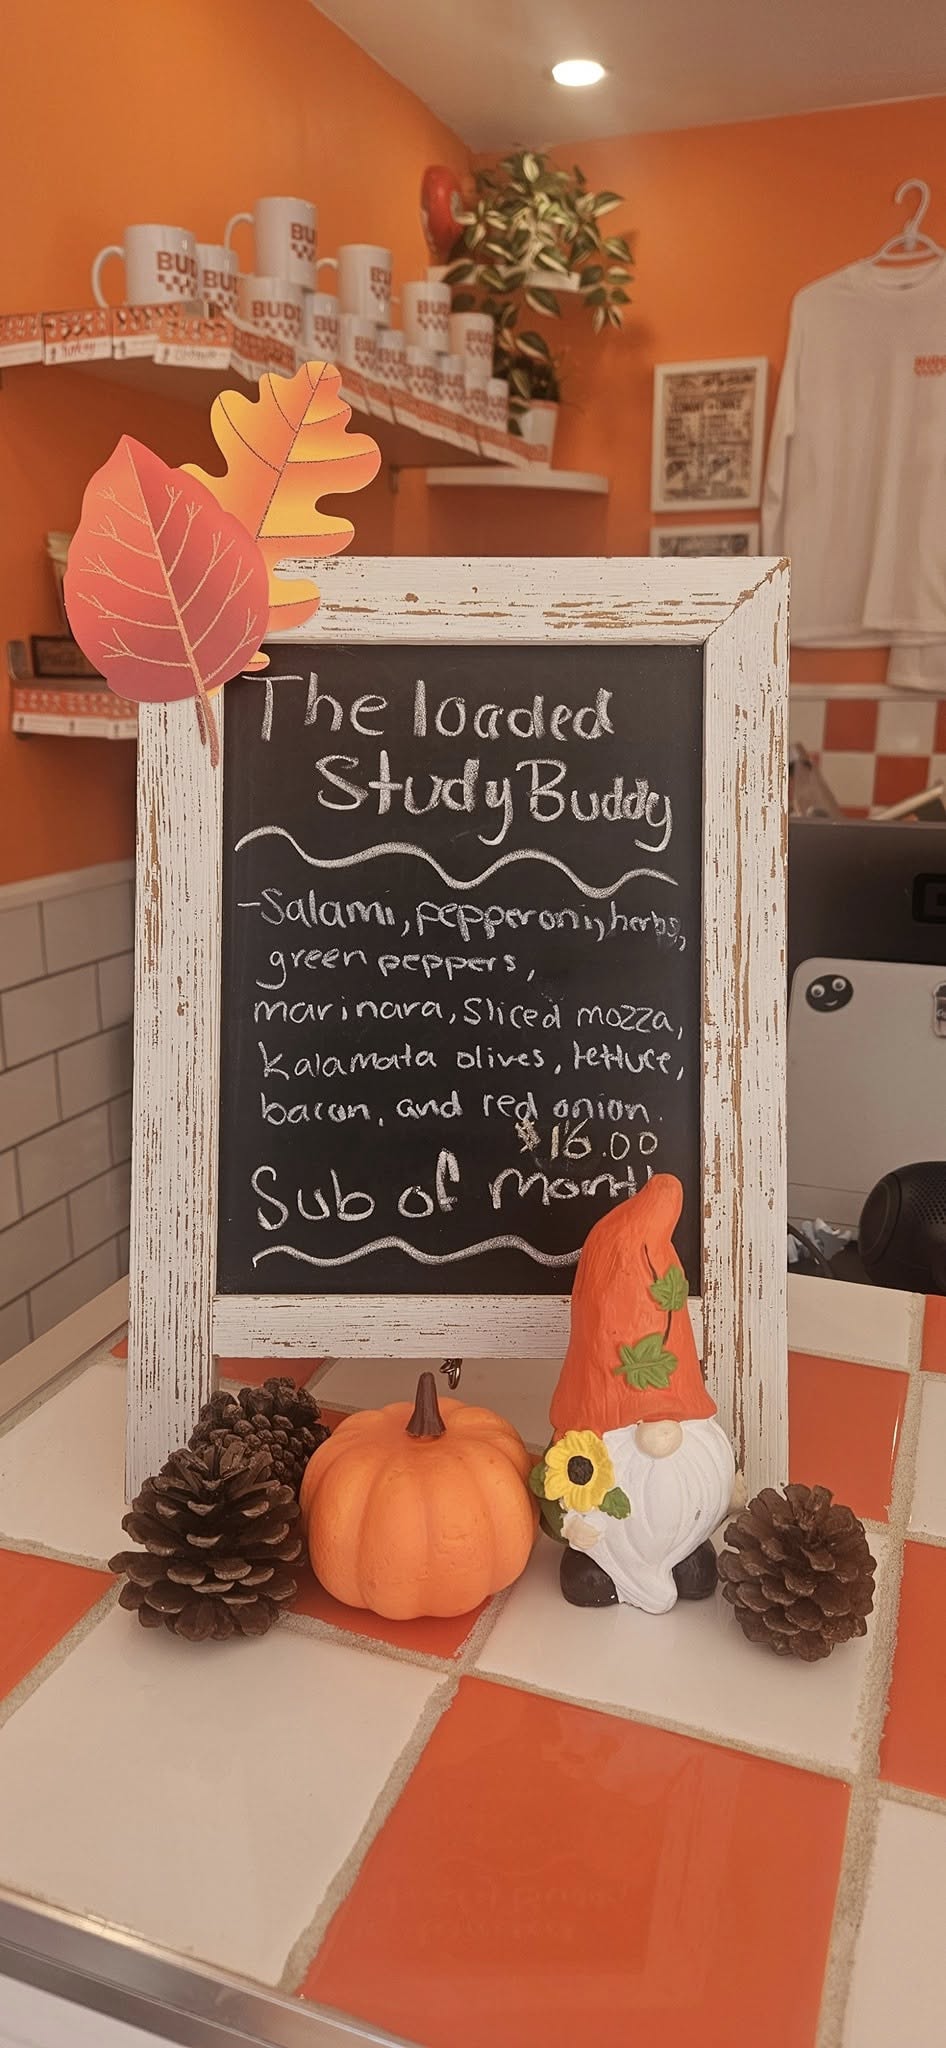 BUDD
BUDD
BUD
BUD
BUDD
BUD
BUD
The loaded
Study Buddy
-Salami, pepperoni, herbs,
green peppers,
marinara, Sliced mozza,
kalamata olives, lettuce,
bacon, and red onion.
$16.00
Sub of month